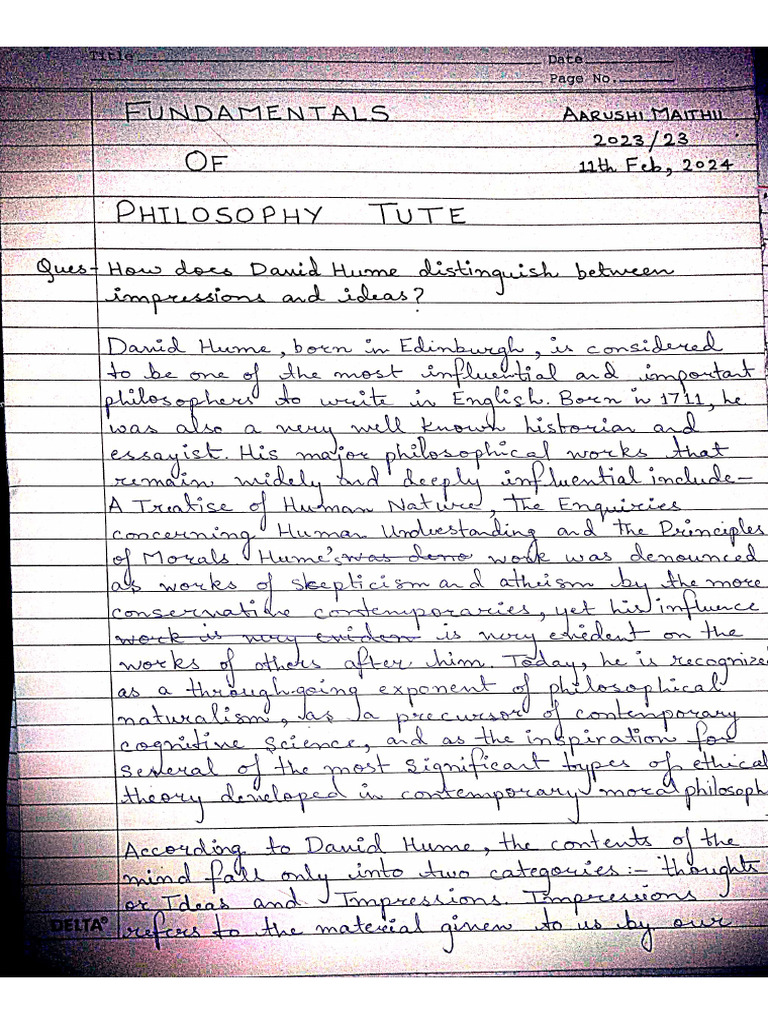 Title Date
Page No.
FUNDAMENTALS AARUSHI MAITHII
2023/23
OF 11th Feb, 2024
PHILOSOPHY TUTE
Ques- How does David Hume distinguish between
impressions and ideas?
David Hume, born in Edinburgh, is considered
to be one of the most influential and important
philosophers to write in English. Born in 1711, he
was also a very well known historian and
essayist. His major philosophical works that
remain widely and deeply influential include-
A Treatise of Human Nature, the Enquiries
concerning Human Understanding and the Principles
of Morals. Hume's was deno work was denounced
as works of skepticism and atheism by the more
conservative contemporaries, yet his influence
work is very eviden is very evident on the
works of others after him. Today, he is recognized
as a through-going exponent of philosophical
naturalism, as a precursor of contemporary
cognitive science, and as the inspiration for
several of the most significant types of ethical
theory developed in contemporary moral philosoph
According to David Hume, the contents of the
mind fall only into two categories:- thoughts
or Ideas and Impressions. Impressions
DELTA refers to the material given to us by our